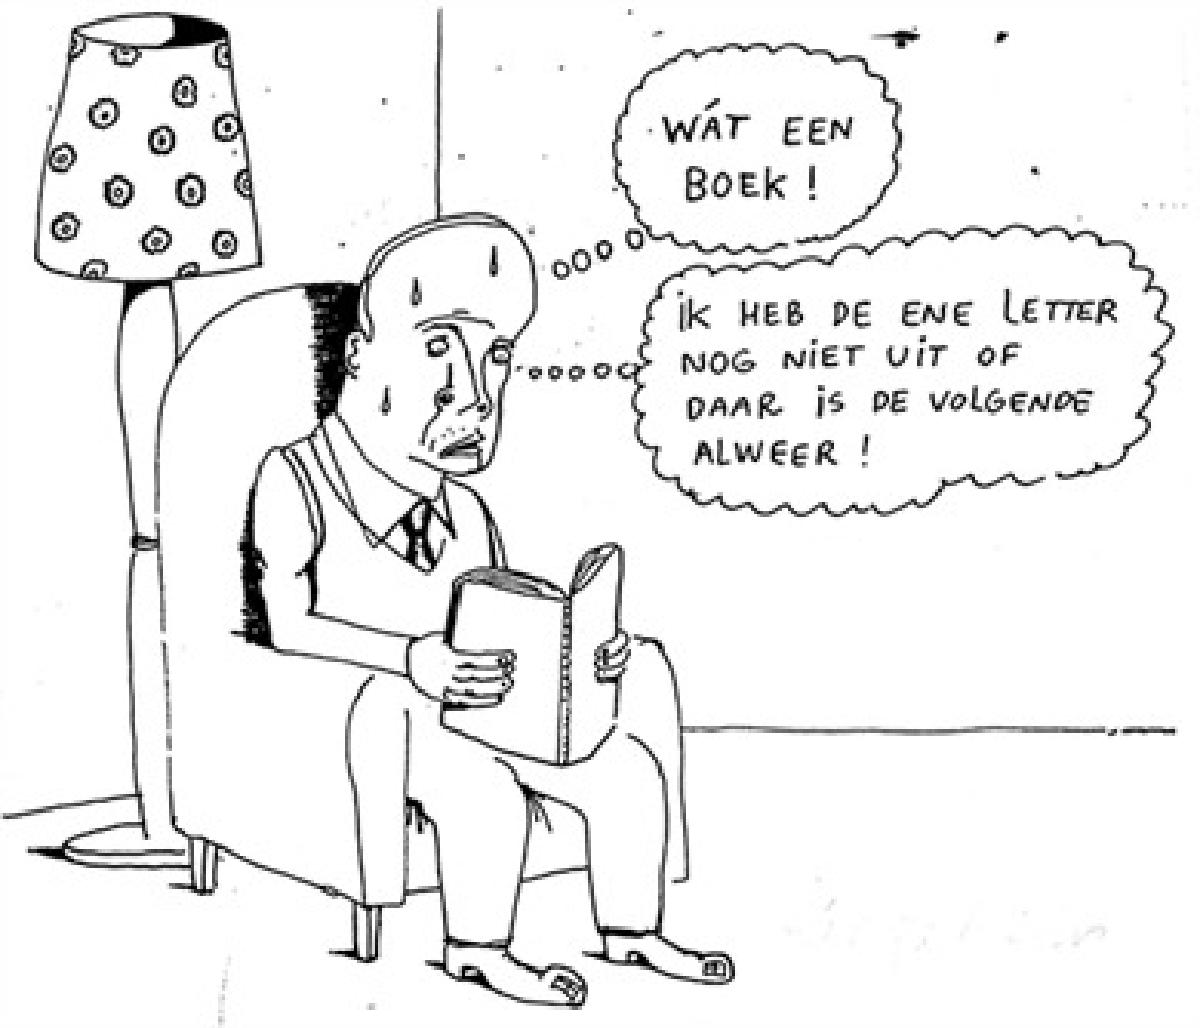 WÁT EEN
BOEK!
iK HEB DE ENE LETTER
NOG NiET UiT OF
DAAR iS DE VOLGENDE
ALWEER!